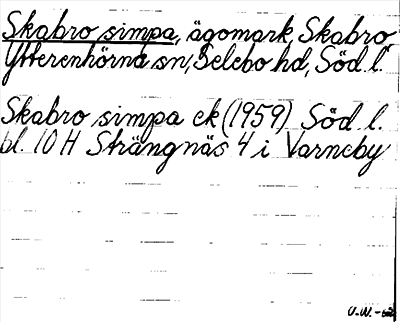 Skabro simpa, ägomark, Skabro,
Ytterenhörna sn, Selebo hd, Söd. l.
Skabro simpa ek (1959) Söd. l.
bl. 10 H Strängnäs 4 i Varneby
U.W.-65